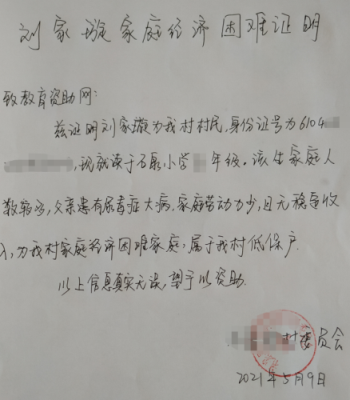 刘家璇家庭经济困难证明
致教育资助网:
兹证明刘家璇为我村村民,身份证号为6104
,现就读于石鼎小学 年级。该生家庭人
数较多,父亲患有尿毒症大病,家庭劳动力少,且无稳定收
入,为我村家庭经济困难家庭,属于我村低保户.
以上信息真实无误,望予以资助.
村委员会
2021年5月9日